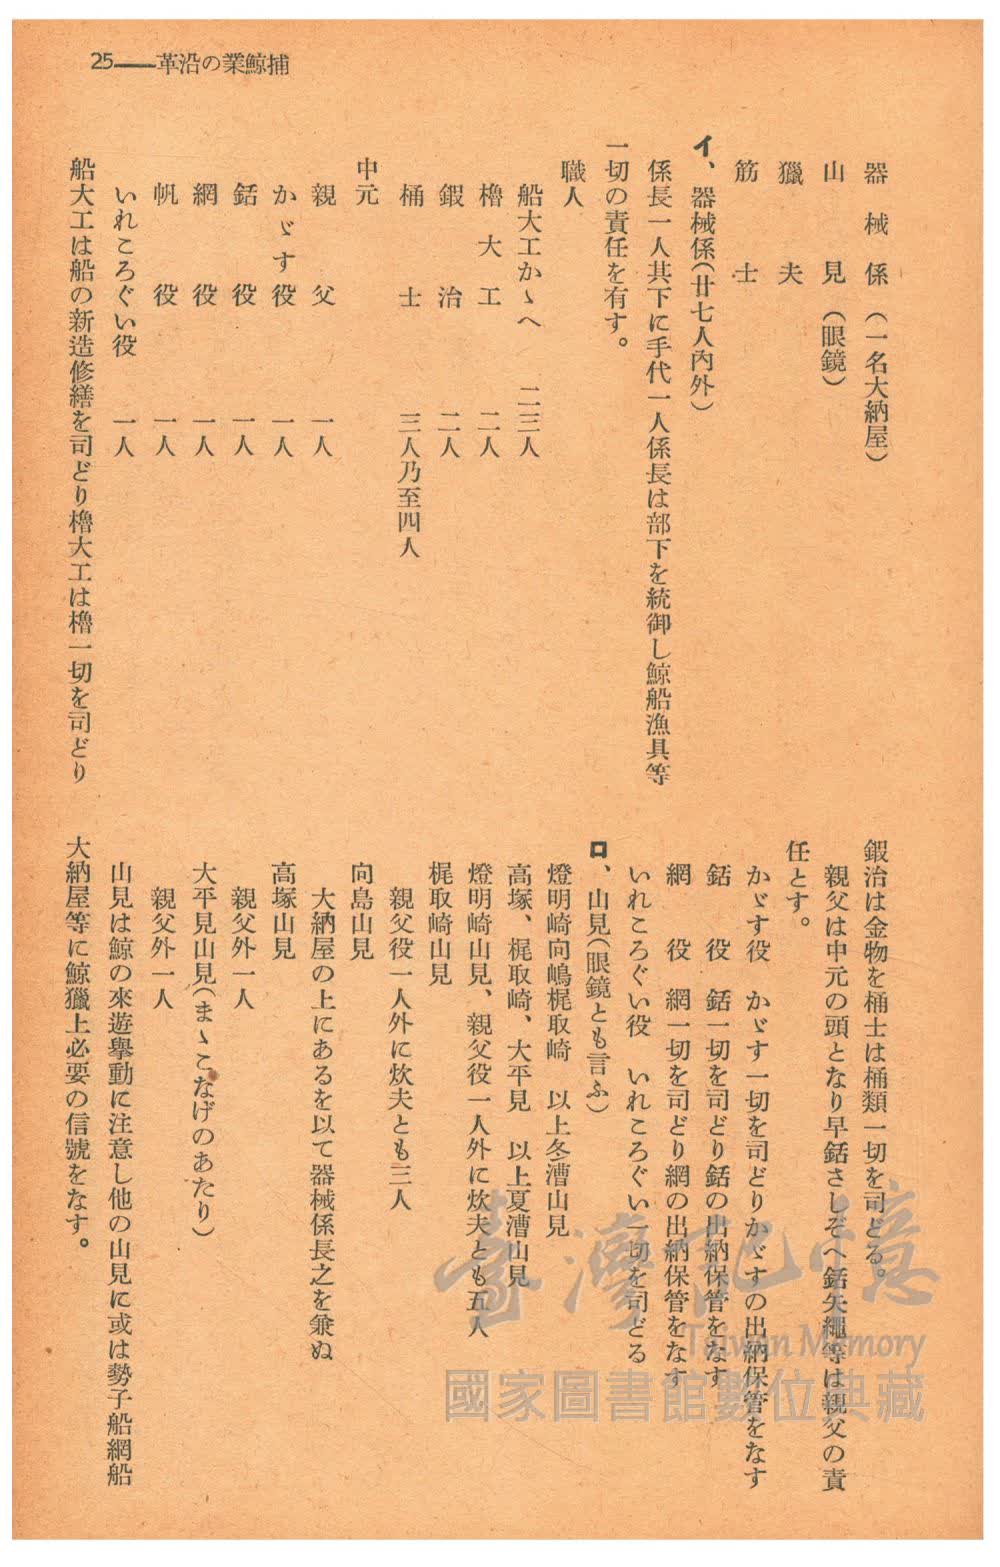 25——革沿の業鯨捕
器械係（一名大納屋）
山見（眼鏡）
獵夫
筋士
イ、器械係（廿七人內外）
係長一人其下に手代一人係長は部下を統御し鯨船漁具等
一切の責任を有す。
職人
船大工かゝへ　二三人
櫓大工　二人
鍜治　二人
桶士　三人乃至四人
中元
親父　一人
かゞす役　一人
銛役　一人
網役　一人
帆役　一人
いれころぐい役　一人
船大工は船の新造修繕を司どり櫓大工は櫓一切を司どり
鍜治は金物を桶士は桶類一切を司どる。
親父は中元の頭となり早銛さしぞへ銛矢繩等は親父の責
任とす。
かゞす役　かゞす一切を司どりかゞすの出納保管をなす
銛役　銛一切を司どり銛の出納保管をなす
網役　網一切を司どり網の出納保管をなす
いれころぐい役　いれころぐい一切を司どる
ロ、山見（眼鏡とも言ふ）
燈明崎向嶋梶取崎　以上冬漕山見
高塚、梶取崎、大平見　以上夏漕山見
燈明崎山見、親父役一人外に炊夫とも五人
梶取崎山見
親父役一人外に炊夫とも三人
向島山見
大納屋の上にあるを以て器械係長之を兼ぬ
高塚山見
親父外一人
大平見山見（まゝこなげのあたり）
親父外一人
山見は鯨の來遊擧動に注意し他の山見に或は勢子船網船
大納屋等に鯨獵上必要の信號をなす。
臺灣記憶
Taiwan Memory
國家圖書館數位典藏